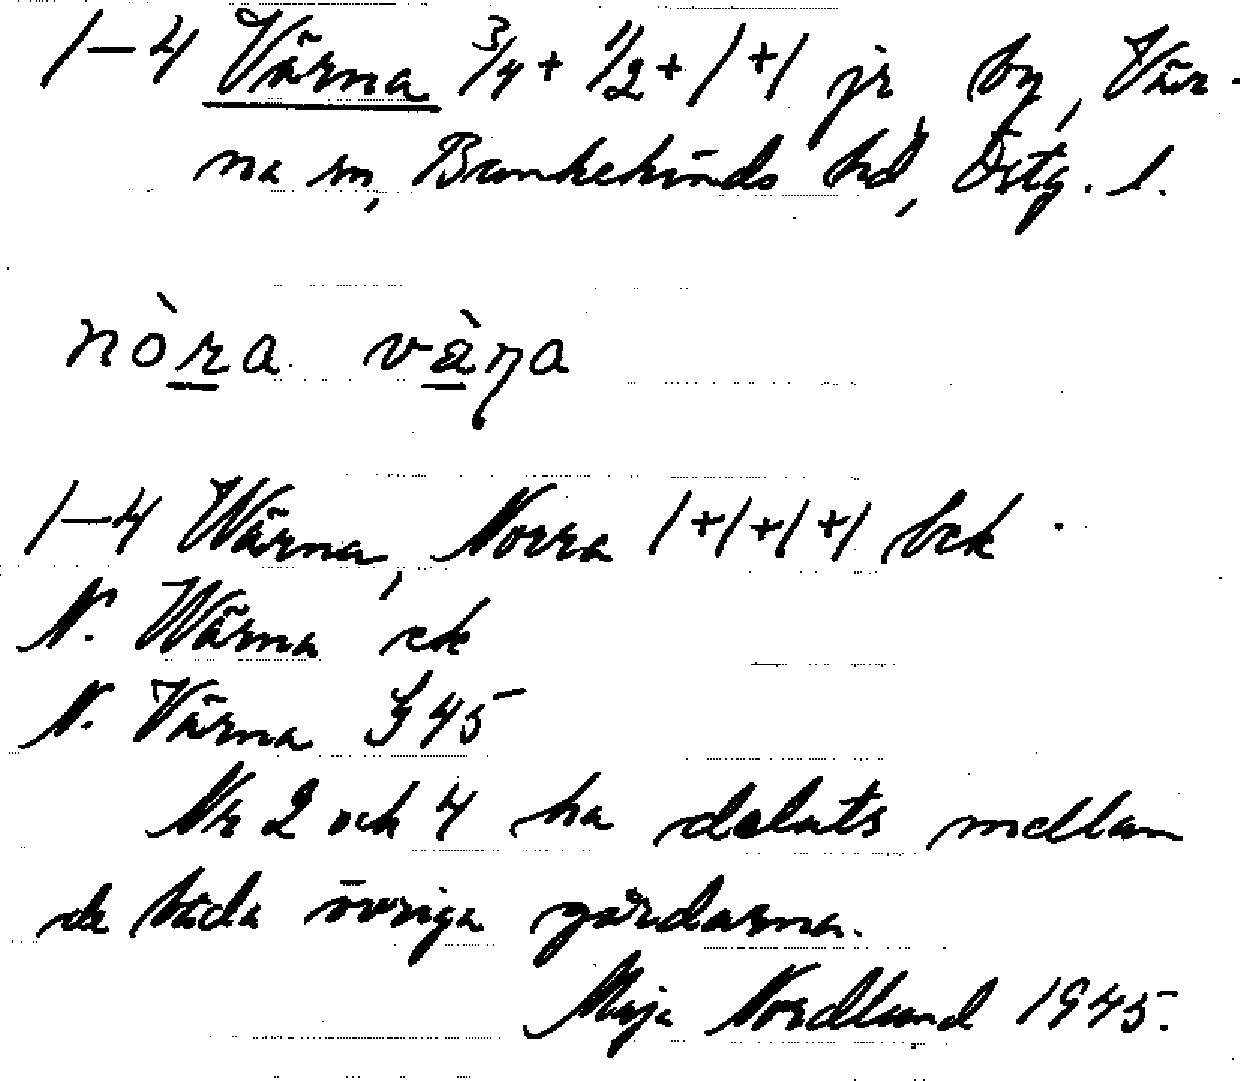 1–4 Värna 3/4 + 1/2 + 1 + 1 jr by, Vär-
na sn, Bankekinds hd, Östg. l.
nòra vàŋa
1–4 Wärna, Norra 1+1+1+1 bek
N. Wärna ek
N. Värna J 45
Nr 2 och 4 ha delats mellan
de båda övriga gårdarna.
Maja Nordlund 1945.